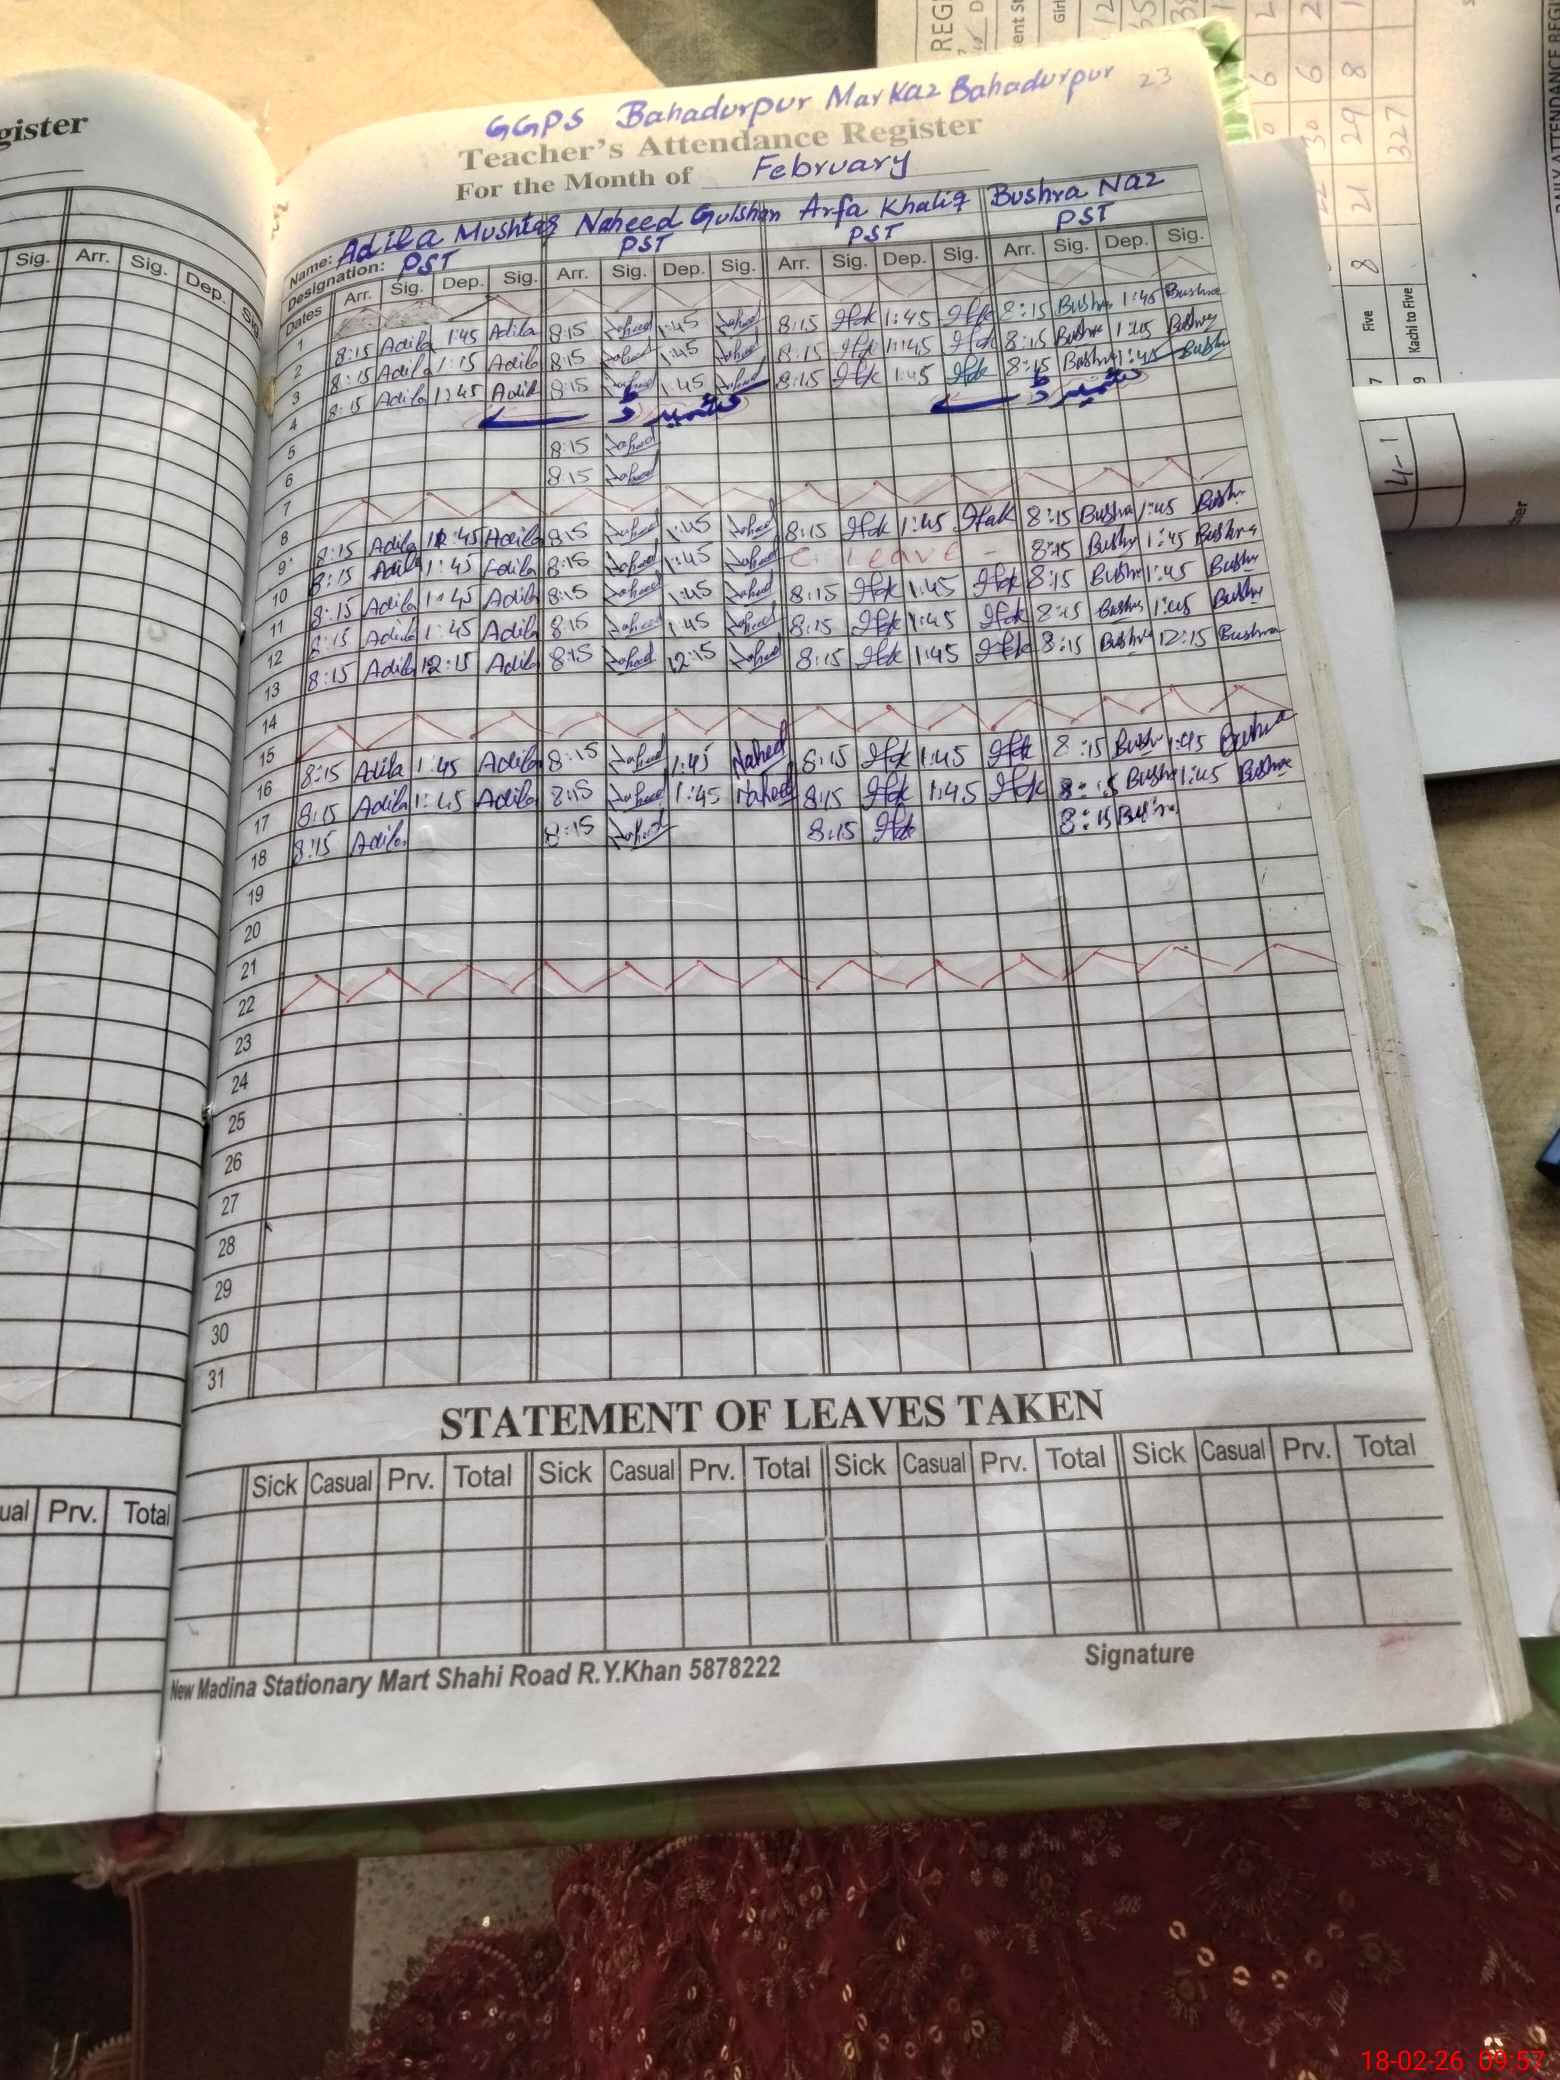 GGPS Bahadurpur Markaz Bahadurpur 23
Teacher's Attendance Register
For the Month of February
Name: Adila Mushtaq Naheed Gulshan Arfa Khaliq Bushra Naz
Designation: PST PST PST PST
Dates Arr. Sig. Dep. Sig. Arr. Sig. Dep. Sig. Arr. Sig. Dep. Sig. Arr. Sig. Dep. Sig.
1
2 8:15 Adila 1:45 Adila 8:15 Naheed 1:45 Naheed 8:15 1:45 8:15 Bushra 1:45 Bushra
3 8:15 Adila 1:15 Adila 8:15 Naheed 1:45 Naheed 8:15 1:45 8:15 Bushra 1:45 Bushra
4 8:15 Adila 1:45 Adila 8:15 Naheed 1:45 Naheed 8:15 1:45 8:15 Bushra 1:45 Bushra
5 کشمیر ڈے کشمیر ڈے
6 8:15 Naheed
7 8:15 Naheed
8
9 8:15 Adila 1:45 Adila 8:15 Naheed 1:45 Naheed 8:15 1:45 8:15 Bushra 1:45 Bushra
10 8:15 Adila 1:45 Adila 8:15 Naheed 1:45 Naheed C. Leave - 8:15 Bushra 1:45 Bushra
11 8:15 Adila 1:45 Adila 8:15 Naheed 1:45 Naheed 8:15 1:45 8:15 Bushra 1:45 Bushra
12 8:15 Adila 1:45 Adila 8:15 Naheed 1:45 Naheed 8:15 1:45 8:15 Bushra 1:45 Bushra
13 8:15 Adila 12:15 Adila 8:15 Naheed 12:15 Naheed 8:15 1:45 8:15 Bushra 12:15 Bushra
14
15
16 8:15 Adila 1:45 Adila 8:15 Naheed 1:45 Naheed 8:15 1:45 8:15 Bushra 1:45 Bushra
17 8:15 Adila 1:45 Adila 8:15 Naheed 1:45 Naheed 8:15 1:45 8:15 Bushra 1:45 Bushra
18 8:15 Adila 8:15 Naheed 8:15 8:15 Bushra
19
20
21
22
23
24
25
26
27
28
29
30
31
STATEMENT OF LEAVES TAKEN
Sick Casual Prv. Total Sick Casual Prv. Total Sick Casual Prv. Total Sick Casual Prv. Total
New Madina Stationary Mart Shahi Road R.Y.Khan 5878222
Signature
gister
Sig. Arr. Sig. Dep.
ual Prv. Total
REGI
Five 8 21 29 8
Kachi to Five 327
4-1
18-02-26 09:57